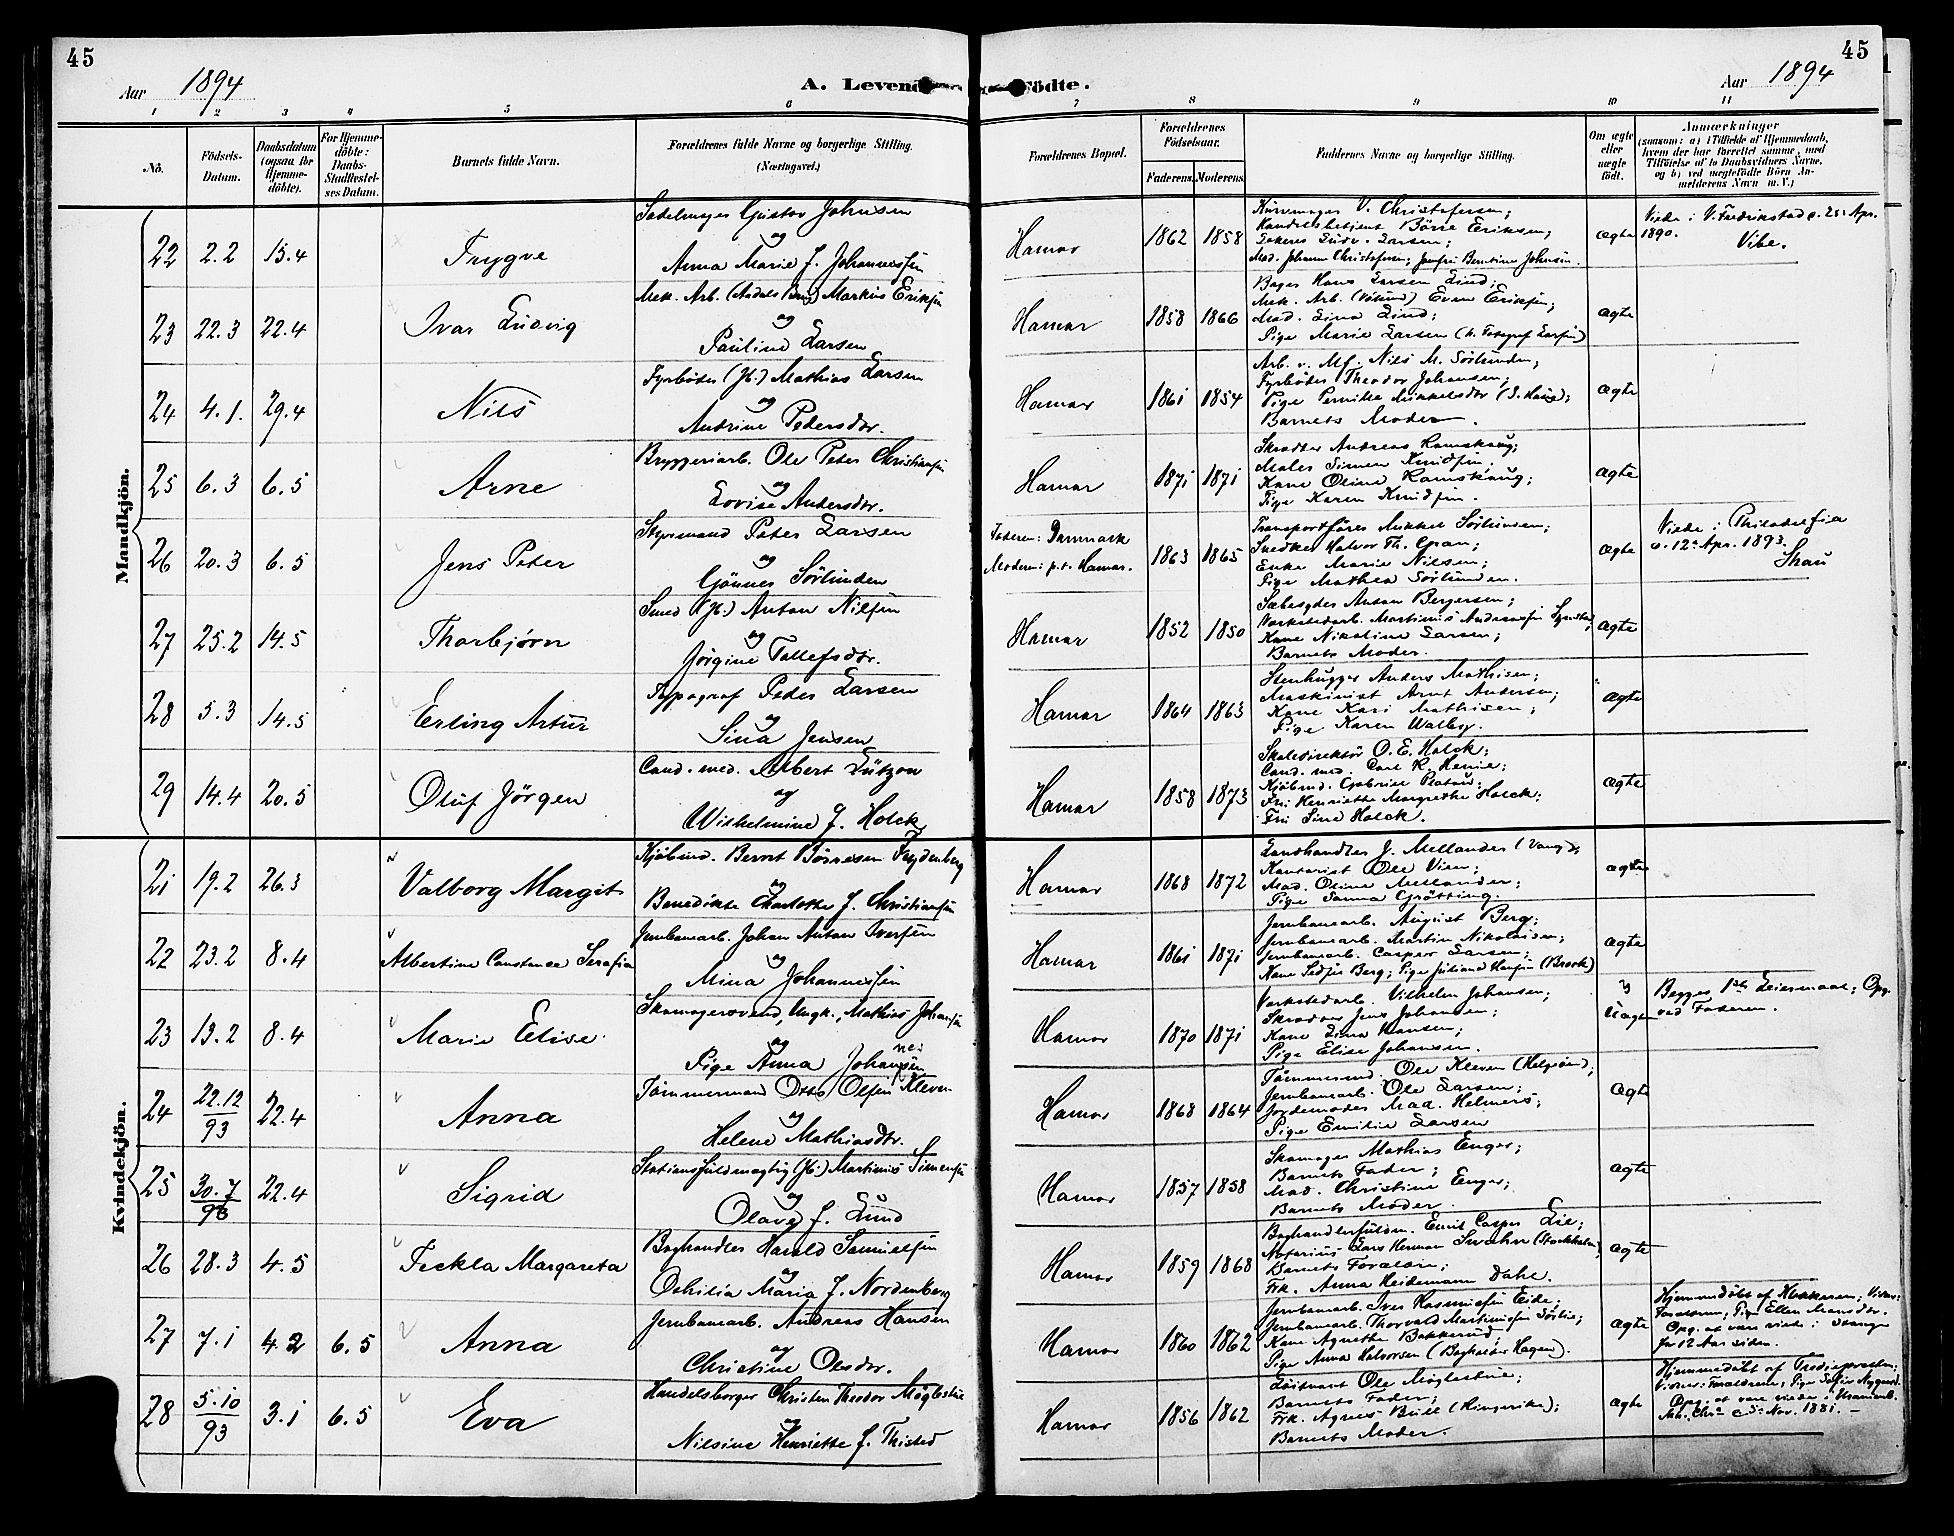 45
45
Aar 1894
A. Levende Födte.
Aar 1894
1 2 3 4 5 6 7 8 9 10 11
No.
Födsels-Datum.
Daabsdatum (ogsaa for Hjemmedöbte).
For Hjemmedöbte: Daabs-Stadfestelses Datum.
Barnets fulde Navn.
Forældrenes fulde Navne og borgerlige Stilling.
(Næringsvei.)
Forældrenes Bopæl.
Forældrenes Födselsaar.
Faderens. Moderens.
Faddernes Navne og borgerlige Stilling.
Om ægte eller uægte födt.
Anmærkninger
(saasom: a) i Tilfælde af Hjemmedaab,
hvem der har forrettet samme, med
Tilföielse af to Daabsvidners Navne,
og b) ved uægtefödte Börn Anmelderens Navn m. V.)
Mandkjön.
22 2.2 15.4 Trygve
Sadelmager Gustav Johnsen
og
Anna Marie f. Johannessen
Hamar 1862 1858
Kurvmager V. Christofersen;
Handelsbetjent Börre Eriksen;
Ludv. Larsen;
Mad. Johanne Christofersen; Jomfru Berntine Johnsen.
ægte
Viede i V. Fredrikstad d. 25 Apr.
1890. Vibe.
23 22.3 22.4 Ivar Ludvig
Mek. Arb. (Aadals Brug) Markus Eriksen
og
Pauline Larsen
Hamar 1858 1866
Bager Hans Larsen Lind;
Mek. Arb. Even Eriksen;
Mad. Lina Lind;
Pige Marie Larsen (h. Fotograf Larsen)
ægte
24 4.1. 29.4 Nils
Fyrböder (Jb.) Mathias Larsen
og
Andrine Pedersdtr.
Hamar 1861 1854
Arb. v. Mf. Nils M. Sörlunden;
Fyrböder Theodor Johansen;
Pige Pernille Mikkelsdtr
Barnets Moder.
ægte
25 6.3 6.5 Arne
Bryggeriarb. Ole Peter Christiansen
og
Lovise Andersdtr.
Hamar 1871 1871
Skrædder Andreas Ramskaug;
Maler Simen Knudsen;
Kone Oline Ramskaug;
Pige Karen Knudsen.
ægte
26 20.3 6.5 Jens Peter
Styrmand Peter Larsen
og
Gönner Sörlunden
Faderen: Danmark
Moderen: p.t. Hamar.
1863 1865
Transportförer Mikkel Sörlunden;
Snedker Halvor Th. Gran;
Enke Marie Nilsen;
Pige Mathea Sörlunden.
ægte
Viede i Philadelfia
d. 12te Apr. 1893.
Skau
27 25.2 14.5 Thorbjørn
Smed (Jb.) Anton Nilsen
og
Jørgine Tollefsdtr.
Hamar 1852 1850
Sæbesyder Anton Bergersen;
Værkstedarb. Martinus Andreassen
Kone Nikoline Larsen;
Barnets Moder.
ægte
28 5.3 14.5 Erling Artur
Typograf Peder Larsen
og
Sina Jensen
Hamar 1864 1863
Stenhugger Anders Mathisen;
Maskinist Arnt Andersen;
Kone Kari Mathisen;
Pige Karen Walby.
ægte
29 14.4 20.5 Oluf Jörgen
Cand. med. Albert Lützow
og
Wilhelmine f. Holck
Hamar 1858 1873
Skoledirektör O. E. Holck;
Cand. med. Carl R. Henie;
Kjöbmd. Gabriel Platou;
Fru Henriette Margrethe Holck;
Frk Sina Holck.
ægte
Kvindekjön.
21 19.2 26.3 Valborg Margit
Kjöbmd. Bernt Börresen Frydenberg
og
Benedikte Charlotte f. Christiansen
Hamar 1868 1872
Landhandler J. Mellander (Vang);
Kontorist Ole Vien;
Mad. Oline Mellander;
Pige Sanna Grötting.
ægte
22 23.2 8.4 Albertine Constance Serafia
Jernbanearb. Johan Anton Iversen
og
Mina Johannessen
Hamar 1861 1871
Jernbanearb. August Berg;
Jernbanearb. Martin Nikolaisen;
Jernbanearb. Casper Larsen;
Kone Berg; Pige Juliane Hansen
ægte
23 13.2 8.4 Marie Elise.
Skomagersvend, Ungk., Mathias Johansen
og
Pige Anna Johannesen
Hamar 1870 1871
Værkstedarb. Vilhelm Johansen;
Skrædder Jens Johansen;
Kone Lina Hansen;
Pige Elise Johansen.
Uægte
Begges 1ste Leiermaal; Opg.
ved Faderen.
24 22.12/93 22.4 Anna
Tömmermand Otto Olsen Kleven
og
Helene Mathiasdtr.
Hamar 1868 1864
Tömmermd. Ole Kleven (Helgöen);
Jernbanearb. Ole Larsen;
Jordemoder Mad. Helmers;
Pige Emilie Larsen
ægte
25 30.7/93 22.4 Sigrid
Stationsfuldmægtig (Jb.) Martinius Simensen
og
Olava f. Lund
Hamar 1857 1858
Skomager Mathias Enger;
Barnets Fader;
Mad. Christine Enger;
Barnets Moder.
ægte
26 28.3 4.5 Teckla Margareta
Boghandler Harald Samuelsen
og
Othilia Maria f. Nordenberg
Hamar 1859 1868
Boghandlerfuldm. Emil Casper Lie;
Notarius Lars Herman Swahn (Stockholm);
Barnets Forældre;
Frk. Anna Heidemann Dahl.
ægte
27 7.1 4.2 6.5 Anna
Jernbanearb. Andreas Hansen
og
Christine Olsdtr.
Hamar 1860 1862
Jernbanearb. Iver Rasmussen Eide;
Jernbanearb. Thorvald Martinussen Sörlie;
Kone Agnethe Bakkerud;
Pige Anna Halvorsen (Baghuset Hagen).
ægte
Hjemmedöbt af Klokkeren; Vidner:
Forældrene, Pige Ellen Monsdtr.
Opg. at være viede i Stange
for 12 Aar siden.
28 5.10/93 3.1 6.5 Eva
Handelsborger Christen Theodor Möglestue
og
Nilsine Henriette f. Thisted
Hamar 1856 1862
Löitnant Ole Möglestue;
Barnets Fader;
Frk. Agnes Bull (Ringerike);
Barnets Moder.
ægte
Hjemmedöbt af Tredjepresten;
Vidner: Forældrene, Pige Sofie Nygaard.
Opg. at være viede i
Nov. 1881.